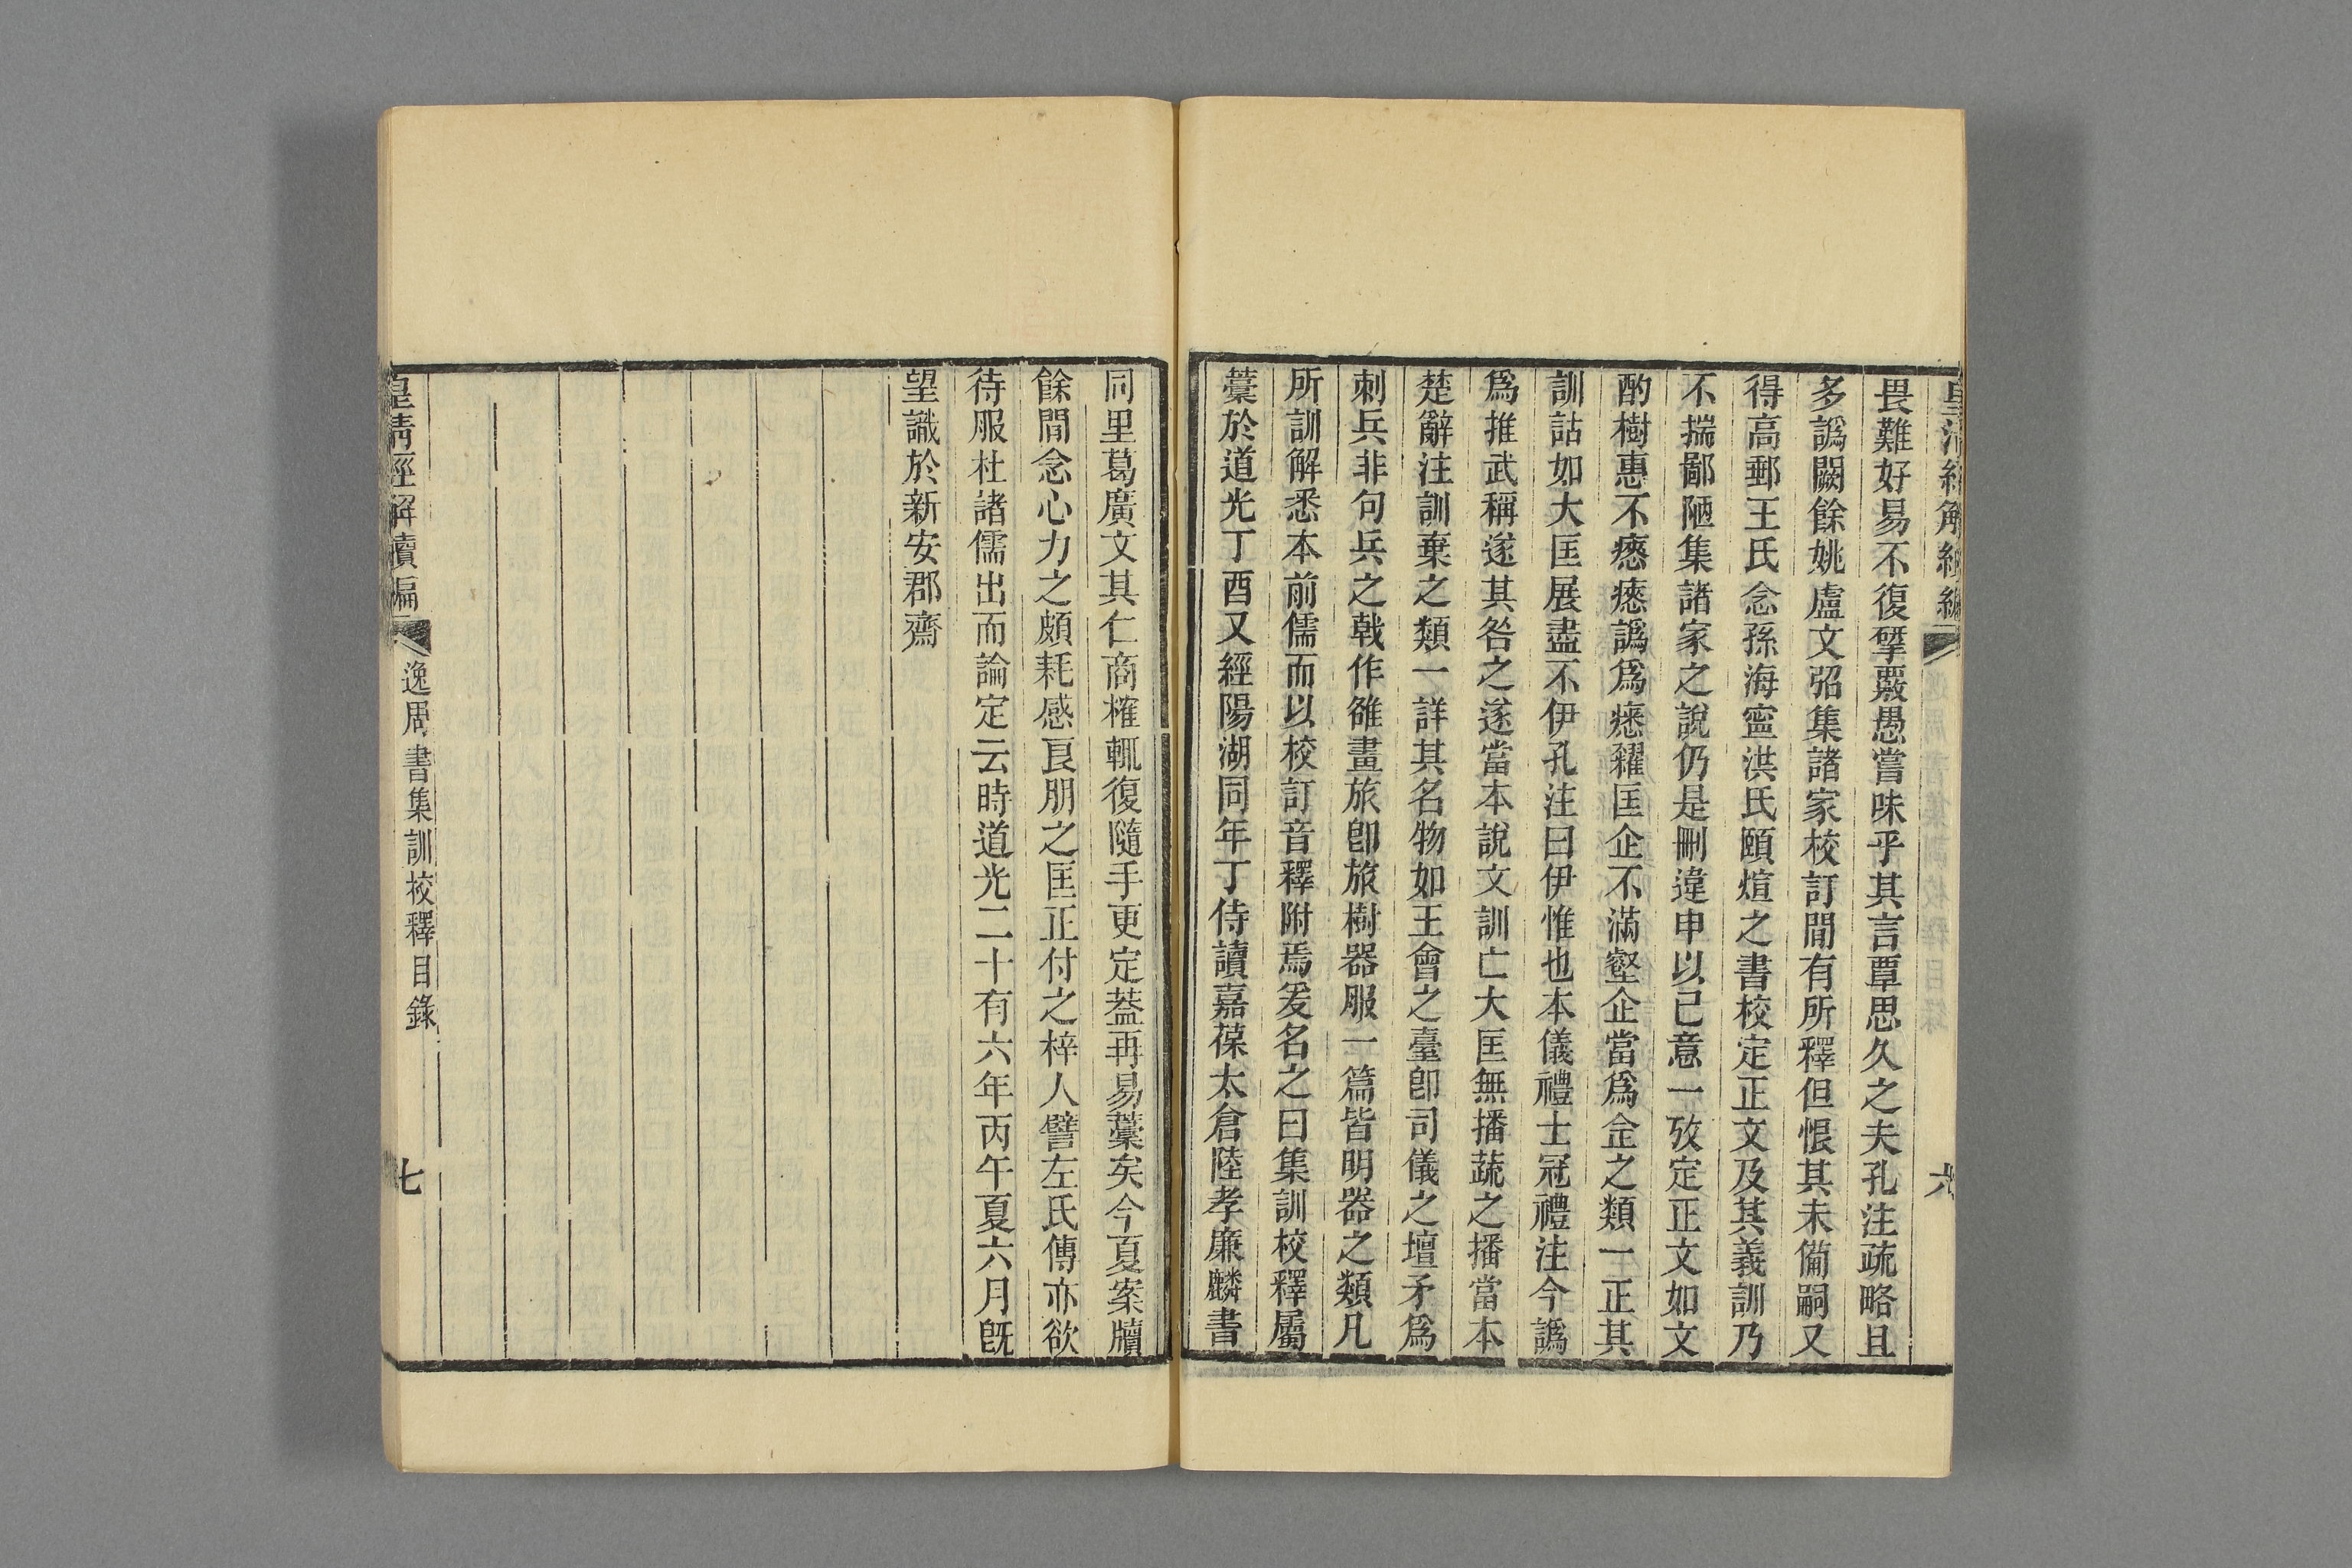 皇清經解續編
六
畏難好易不復揅覈愚嘗味乎其言覃思久之夫孔注疏略且
多譌闕餘姚盧文弨集諸家校訂閒有所釋但恨其未備嗣又
得高郵王氏念孫海寧洪氏頤煊之書校定正文及其義訓乃
不揣鄙陋集諸家之說仍是刪違申以己意一攷定正文如文
酌樹惠不瘱瘱譌爲瘱糴匡企不滿壑企當爲仚之類一正其
訓詁如大匡展盡不伊孔注曰伊惟也本儀禮士冠禮注今譌
爲推武稱遂其咎之遂當本說文訓亡大匡無播蔬之播當本
楚辭注訓棄之類一詳其名物如王會之臺卽司儀之壇矛爲
刺兵非句兵之戟作雒畫旅卽旅樹器服一篇皆明器之類凡
所訓解悉本前儒而以校訂音釋附焉爰名之曰集訓校釋屬
藳於道光丁酉又經陽湖同年丁侍讀嘉葆太倉陸孝廉麟書
同里葛廣文其仁商榷輒復隨手更定葢再易藳矣今夏案牘
餘閒念心力之頗耗感良朋之匡正付之梓人譬左氏傳亦欲
待服杜諸儒出而論定云時道光二十有六年丙午夏六月旣
望識於新安郡齋
皇清經解續編
逸周書集訓校釋目錄
七